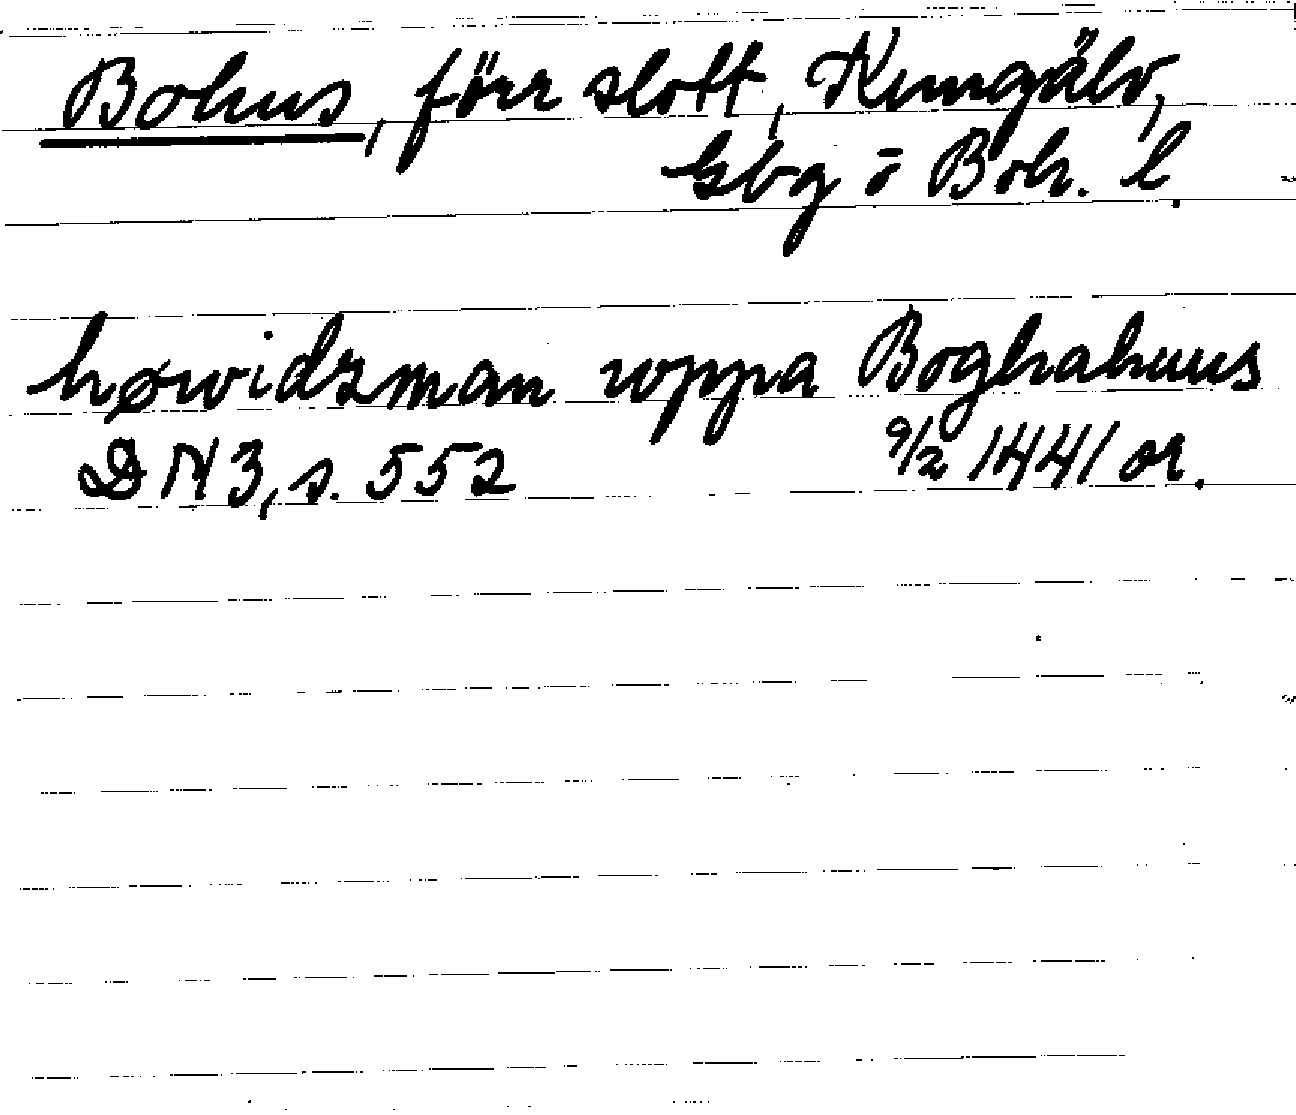 Bohus, förr slott, Kungälv,
Gbg o Boh. l.
høwidzman vppa Boghahuus
DN 3, s. 552 9/2 1441 or.